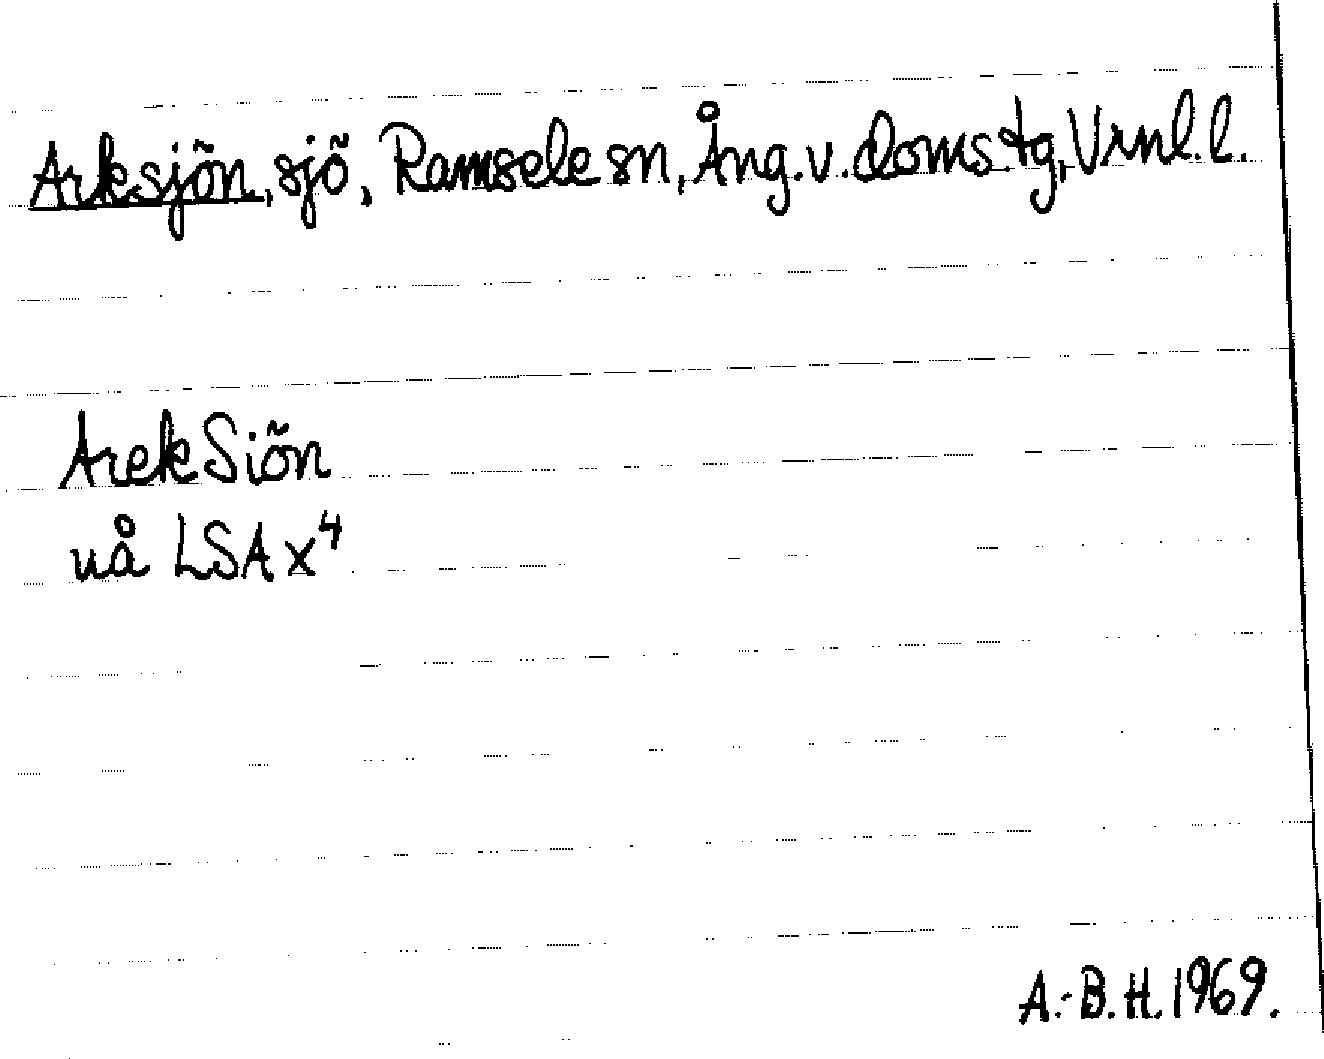 Arksjön, sjö, Ramsele sn, Ång.v.domstg, Vrnl.l.
ArekSiön
uå LSA x⁴
A.-B.H. 1969.